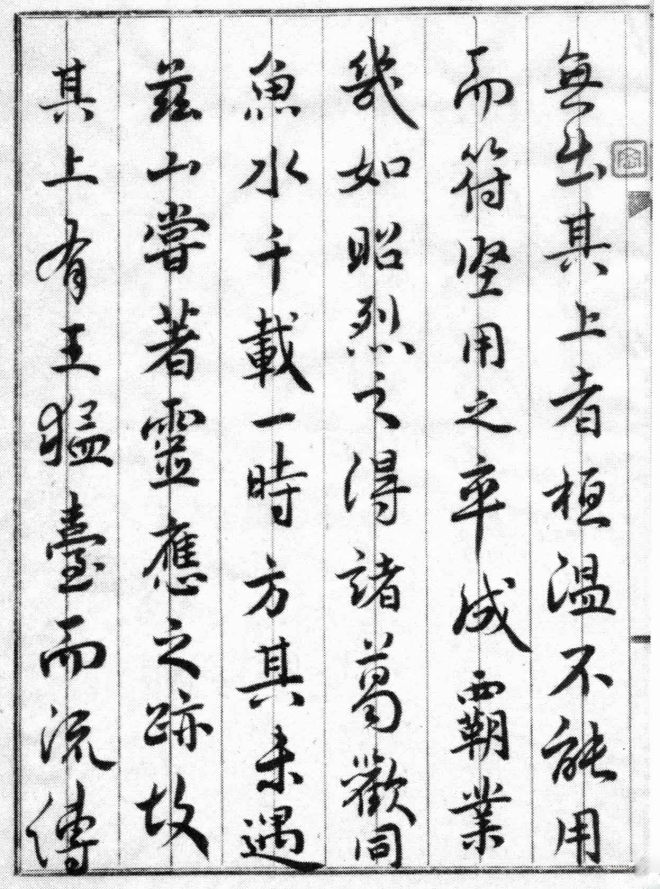 無出其上者桓溫不能用
而符堅用之卒成覇業
幾如昭烈之得諸葛歡同
魚水千載一時方其未遇
茲山嘗著靈應之跡故
其上有王猛臺而流傳